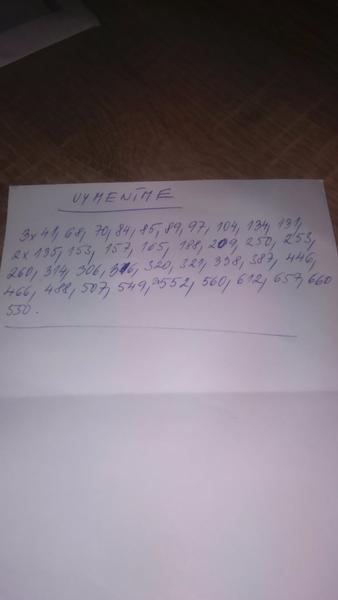 VYMENÍME
3x 41, 68, 70, 84, 85, 89, 97, 104, 134, 131,
2x 135, 153, 157, 165, 188, 209, 250, 253,
260, 314, 306, 316, 320, 321, 338, 387, 446,
466, 488, 507, 549, 552, 560, 612, 657, 660
530.